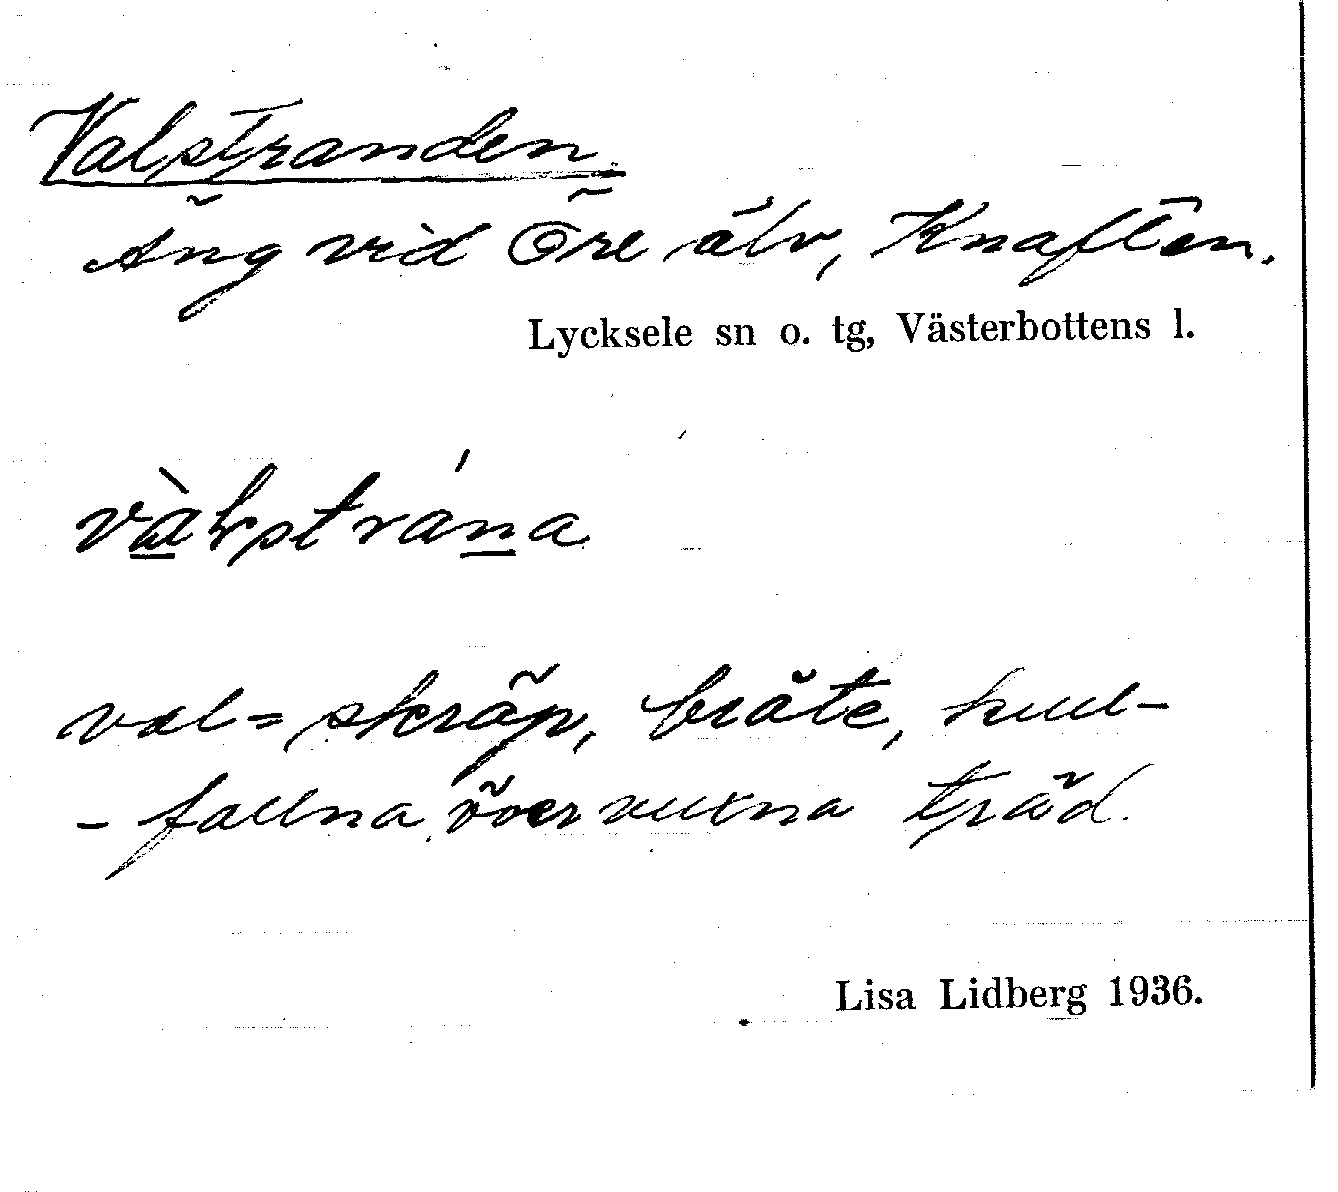 Valstranden.
Äng vid Öre älv, Knaften.
Lycksele sn o. tg, Västerbottens l.
val = skräp, bråte, kull-
- fallna, övervuxna träd.
Lisa Lidberg 1936.